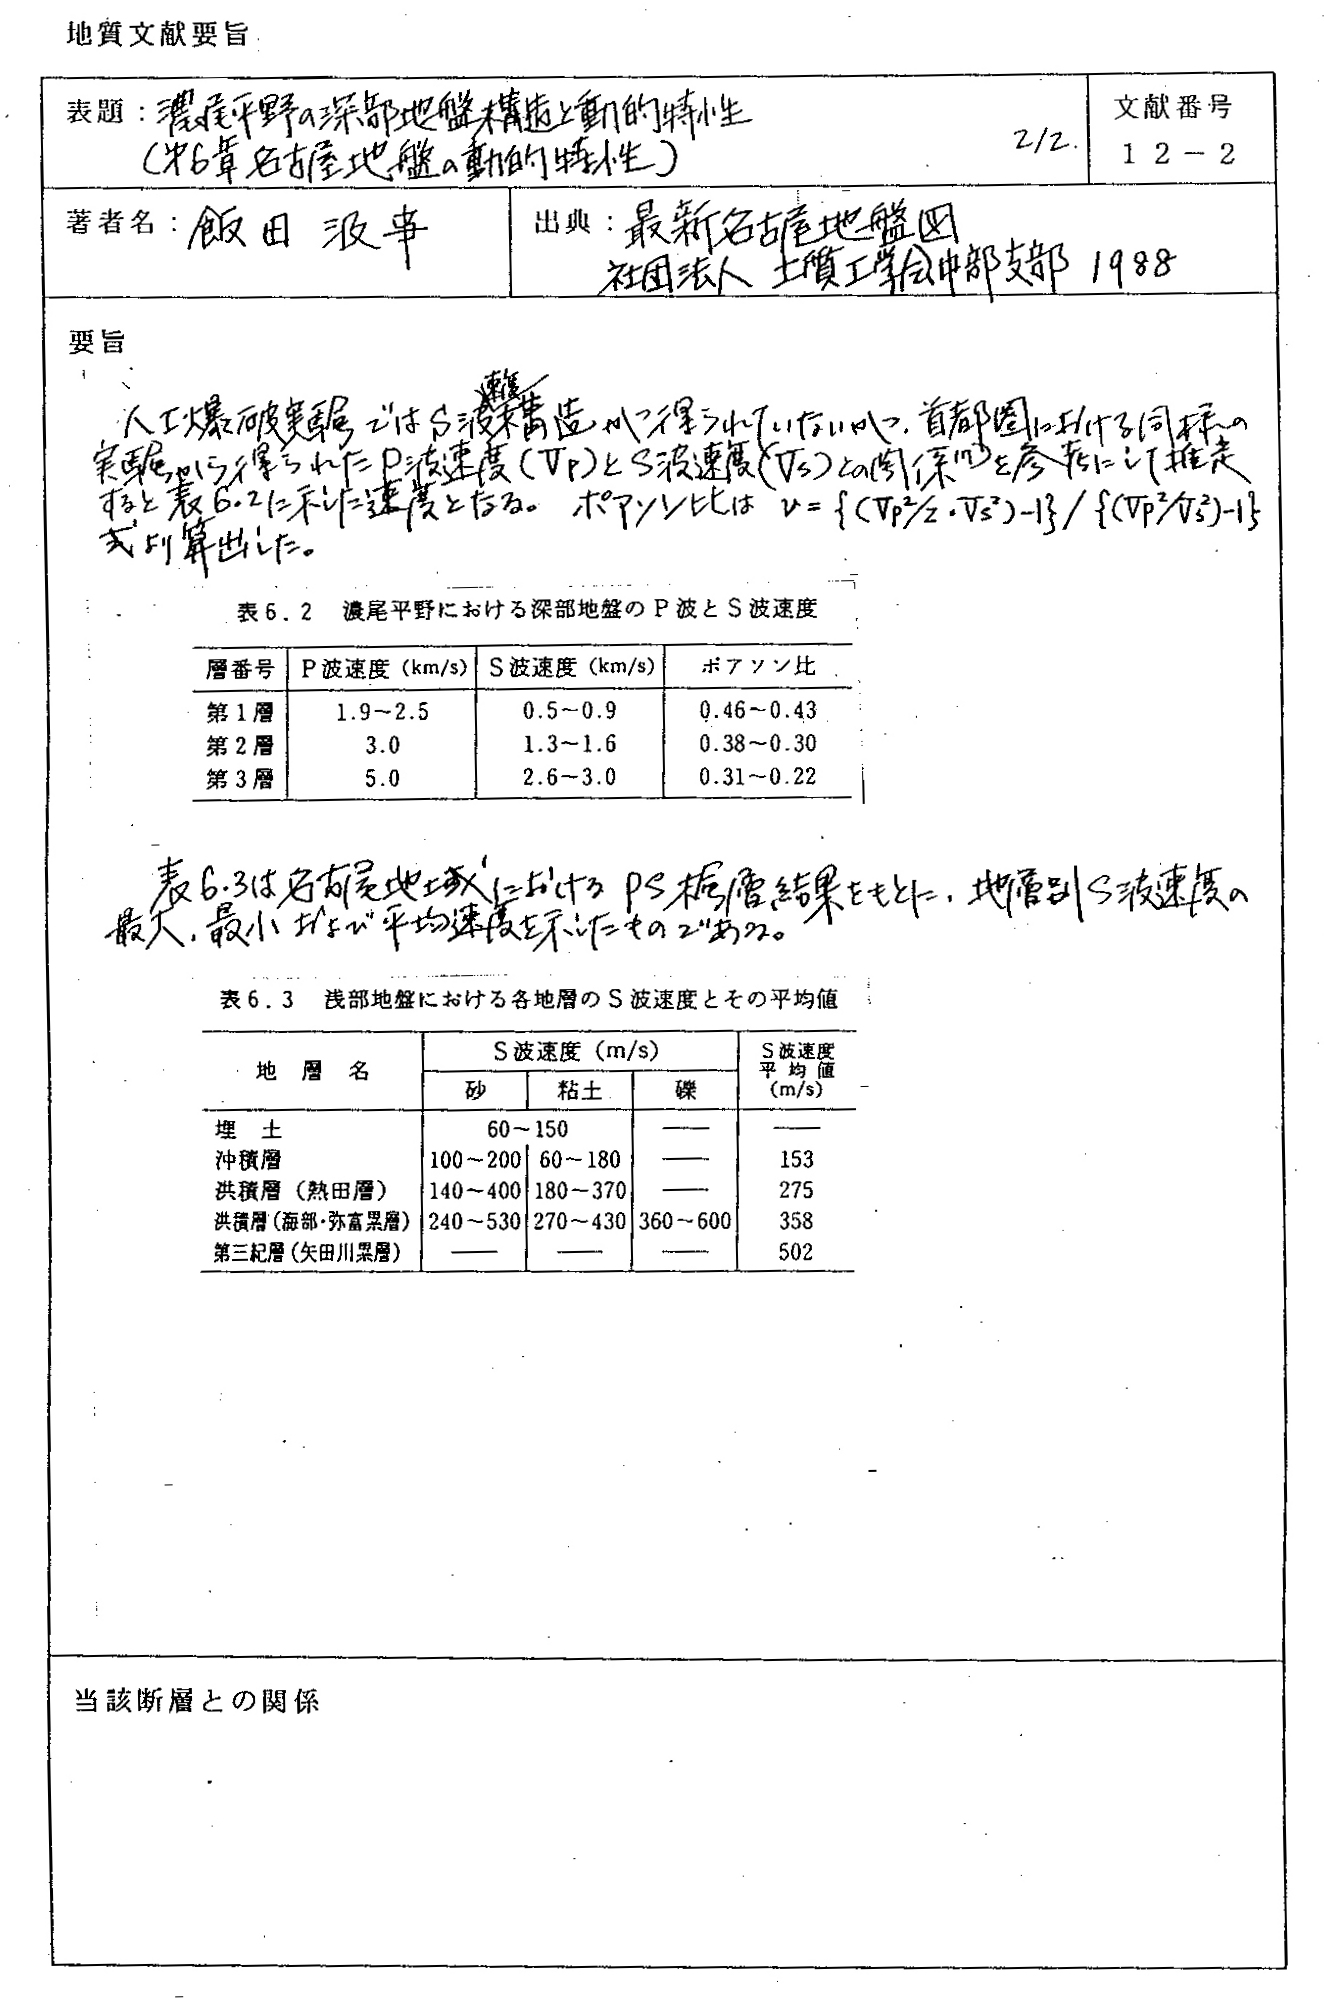 地質文献要旨
表題：濃尾平野の深部地盤構造と動的特性
（第6章 名古屋地盤の動的特性）
2/2.
文献番号
12－2
著者名：飯田 汲事
出典：最新名古屋地盤図
社団法人 土質工学会中部支部 1988
要旨
人工爆破実験ではS波速度構造が得られていないが、首都圏における同様の
実験から得られたP波速度（Vp）とS波速度（Vs）との関係を参考にして推定
すると表6.2に示した速度となる。 ポアソン比は ν={(Vp²/2・Vs²)-1}/{(Vp²/Vs²)-1}
式より算出した。
表6.2 濃尾平野における深部地盤のP波とS波速度
層番号 P波速度（km/s） S波速度（km/s） ポアソン比
第1層 1.9～2.5 0.5～0.9 0.46～0.43
第2層 3.0 1.3～1.6 0.38～0.30
第3層 5.0 2.6～3.0 0.31～0.22
表6.3は名古屋地域におけるPS検層結果をもとに、地層別S波速度の
最大、最小および平均速度を示したものである。
表6.3 浅部地盤における各地層のS波速度とその平均値
地層名 S波速度（m/s） S波速度平均値（m/s）
砂 粘土 礫
埋土 60～150 —— ——
沖積層 100～200 60～180 —— 153
洪積層（熱田層） 140～400 180～370 —— 275
洪積層（海部・弥富累層） 240～530 270～430 360～600 358
第三紀層（矢田川累層） —— —— —— 502
当該断層との関係